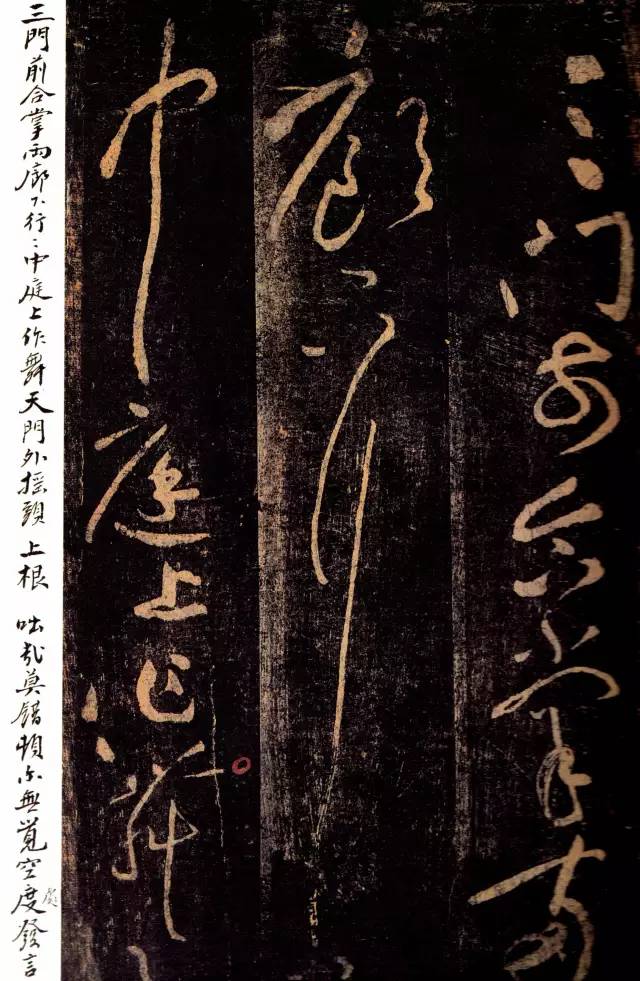 三门前合掌兩
廊下行
中庭上作舞
三門前合掌兩廊下行〻中庭上作舞天門外摇頭 上根 咄哉莫錯頓尔無覓空度發言
處